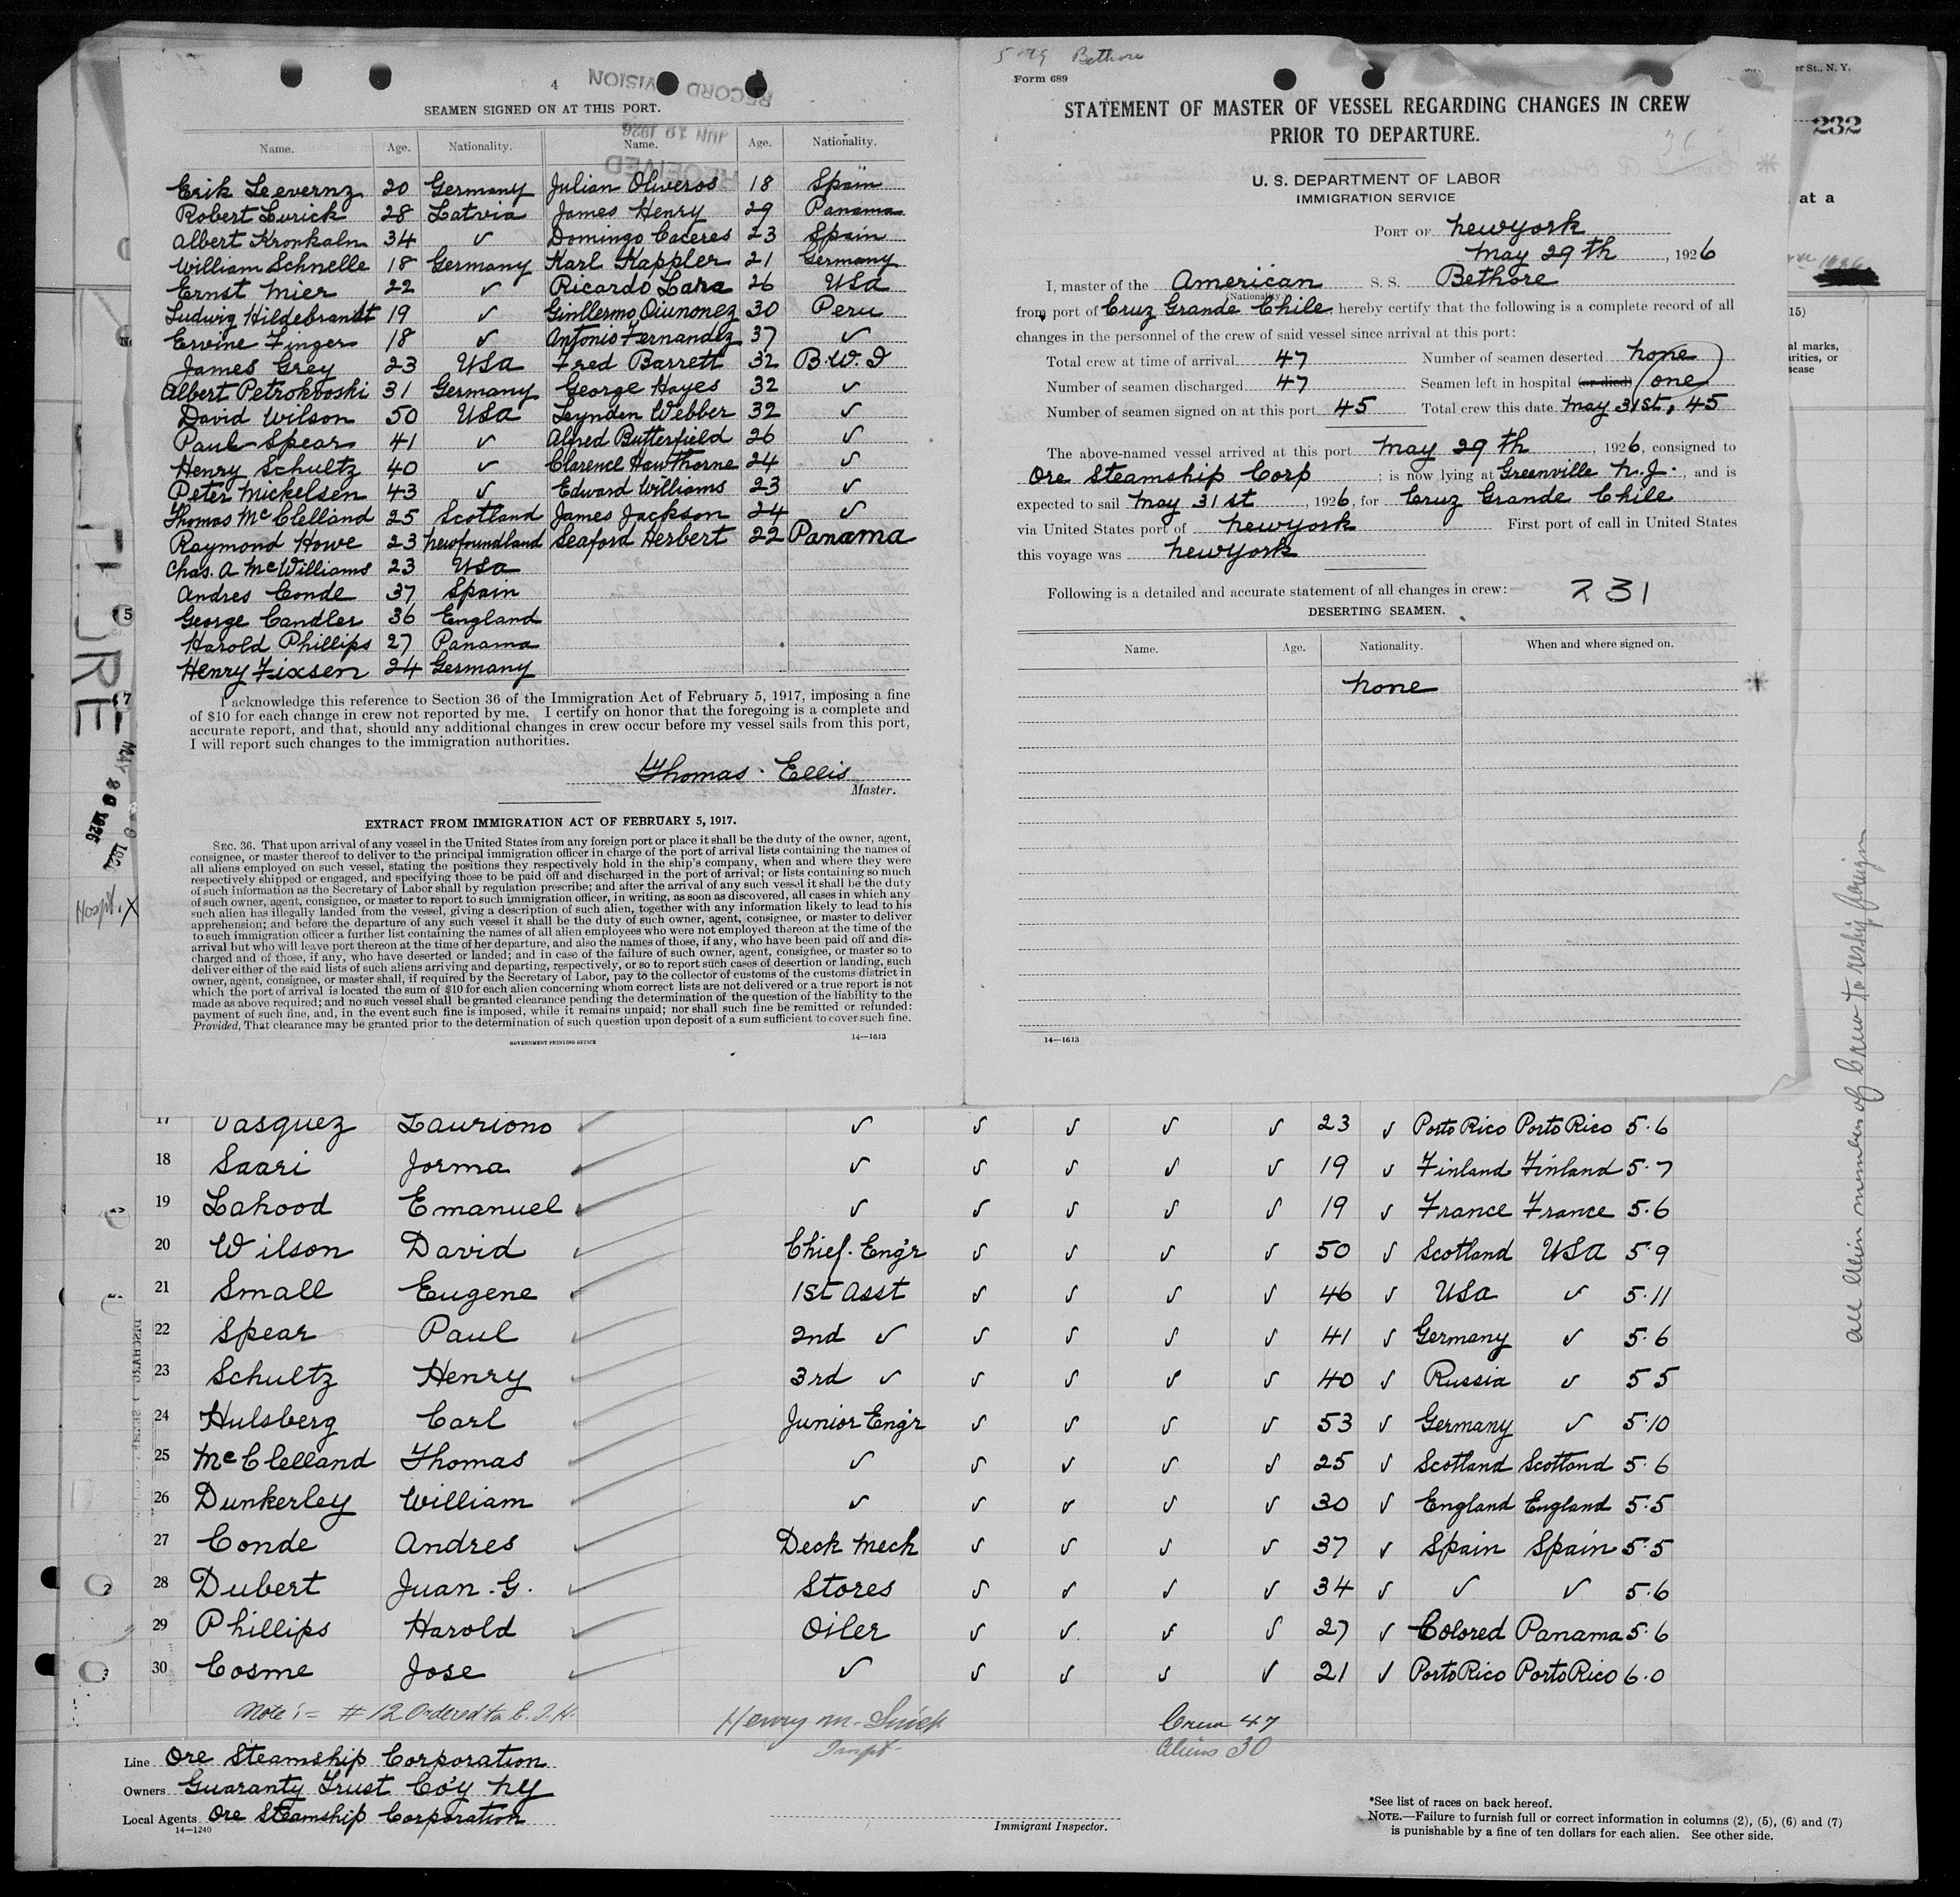 4
RECORD DIVISION
JUN 19 1926
RECEIVED
SEAMEN SIGNED ON AT THIS PORT.
Name. Age. Nationality. Name. Age. Nationality.
Erik Leevernz 20 Germany Julian Oliveros 18 Spain
Robert Lurick 28 Latvia James Henry 29 Panama
Albert Kronkaln 34 ✓ Domingo Caceres 23 Spain
William Schnelle 18 Germany Karl Kappler 21 Germany
Ernst Mier 22 ✓ Ricardo Lara 26 USA
Ludwig Hildebrandt 19 ✓ Ginllermo Quinonez 30 Peru
Ervine Finger 18 ✓ Antonio Fernandez 37 ✓
James Grey 23 USA Fred Barrett 32 B.W.I
Albert Petrokboski 31 Germany George Hayes 32 ✓
David Wilson 50 USA Leynden Webber 32 ✓
Paul Spear 41 ✓ Alfred Butterfield 26 ✓
Henry Schultz 40 ✓ Clarence Hawthorne 24 ✓
Peter Mickelsen 43 ✓ Edward Williams 23 ✓
Thomas McClelland 25 Scotland James Jackson 24 ✓
Raymond Howe 23 Newfoundland Seaford Herbert 22 Panama
Chas. A McWilliams 23 USA
Andres Conde 37 Spain
George Candler 36 England
Harold Phillips 27 Panama
Henry Fixsen 24 Germany
I acknowledge this reference to Section 36 of the Immigration Act of February 5, 1917, imposing a fine
of $10 for each change in crew not reported by me. I certify on honor that the foregoing is a complete and
accurate report, and that, should any additional changes in crew occur before my vessel sails from this port,
I will report such changes to the immigration authorities.
Thomas Ellis
Master.
EXTRACT FROM IMMIGRATION ACT OF FEBRUARY 5, 1917.
SEC. 36. That upon arrival of any vessel in the United States from any foreign port or place it shall be the duty of the owner, agent,
consignee, or master thereof to deliver to the principal immigration officer in charge of the port of arrival lists containing the names of
all aliens employed on such vessel, stating the positions they respectively hold in the ship's company, when and where they were
respectively shipped or engaged, and specifying those to be paid off and discharged in the port of arrival; or lists containing so much
of such information as the Secretary of Labor shall by regulation prescribe; and after the arrival of any such vessel it shall be the duty
of such owner, agent, consignee, or master to report to such immigration officer, in writing, as soon as discovered, all cases in which any
such alien has illegally landed from the vessel, giving a description of such alien, together with any information likely to lead to his
apprehension; and before the departure of any such vessel it shall be the duty of such owner, agent, consignee, or master to deliver
to such immigration officer a further list containing the names of all alien employees who were not employed thereon at the time of the
arrival but who will leave port thereon at the time of her departure, and also the names of those, if any, who have been paid off and dis-
charged and of those, if any, who have deserted or landed; and in case of the failure of such owner, agent, consignee, or master so to
deliver either of the said lists of such aliens arriving and departing, respectively, or so to report such cases of desertion or landing, such
owner, agent, consignee, or master shall, if required by the Secretary of Labor, pay to the collector of customs of the customs district in
which the port of arrival is located the sum of $10 for each alien concerning whom correct lists are not delivered or a true report is not
made as above required; and no such vessel shall be granted clearance pending the determination of the question of the liability to the
payment of such fine, and, in the event such fine is imposed, while it remains unpaid; nor shall such fine be remitted or refunded:
Provided, That clearance may be granted prior to the determination of such question upon deposit of a sum sufficient to cover such fine.
GOVERNMENT PRINTING OFFICE
14—1613
Bethore
Form 689
STATEMENT OF MASTER OF VESSEL REGARDING CHANGES IN CREW
PRIOR TO DEPARTURE.
36
U. S. DEPARTMENT OF LABOR
IMMIGRATION SERVICE
PORT OF New York
May 29th, 1926
I, master of the American S. S. Bethore
(Nationality.)
from port of Cruz Grande Chile, hereby certify that the following is a complete record of all
changes in the personnel of the crew of said vessel since arrival at this port:
Total crew at time of arrival 47 Number of seamen deserted none
Number of seamen discharged 47 Seamen left in hospital (or died) one
Number of seamen signed on at this port 45 Total crew this date May 31st, 45
The above-named vessel arrived at this port May 29th, 1926, consigned to
Ore Steamship Corp; is now lying at Greenville N.J., and is
expected to sail May 31st, 1926, for Cruz Grande Chile
via United States port of New York First port of call in United States
this voyage was New York
Following is a detailed and accurate statement of all changes in crew:— 231
DESERTING SEAMEN.
Name. Age. Nationality. When and where signed on.
none
14—1613
er St., N. Y.
232
at a
15)
al marks,
arities, or
sease
MAY 29 1926
Hospt. X
All alien members of crew to reship foreign
17 Vasquez Lauriono ✓ ✓ ✓ ✓ ✓ 23 ✓ Porto Rico Porto Rico 5.6
18 Saari Jorma ✓ ✓ ✓ ✓ ✓ 19 ✓ Finland Finland 5.7
19 Lahood Emanuel ✓ ✓ ✓ ✓ ✓ 19 ✓ France France 5.6
20 Wilson David Chief. Eng'r ✓ ✓ ✓ ✓ 50 ✓ Scotland USA 5.9
21 Small Eugene 1st Asst ✓ ✓ ✓ ✓ 46 ✓ USA ✓ 5.11
22 Spear Paul 2nd ✓ ✓ ✓ ✓ ✓ 41 ✓ Germany ✓ 5.6
23 Schultz Henry 3rd ✓ ✓ ✓ ✓ ✓ 40 ✓ Russia ✓ 5 5
24 Hulsberg Carl Junior Eng'r ✓ ✓ ✓ ✓ 53 ✓ Germany ✓ 5.10
25 McClelland Thomas ✓ ✓ ✓ ✓ ✓ 25 ✓ Scotland Scotland 5.6
26 Dunkerley William ✓ ✓ ✓ ✓ ✓ 30 ✓ England England 5.5
27 Conde Andres Deck Mech ✓ ✓ ✓ ✓ 37 ✓ Spain Spain 5.5
28 Dubert Juan. G. Stores ✓ ✓ ✓ ✓ 34 ✓ ✓ ✓ 5.6
29 Phillips Harold Oiler ✓ ✓ ✓ ✓ 27 ✓ Colored Panama 5.6
30 Cosme Jose ✓ ✓ ✓ ✓ ✓ 21 ✓ Porto Rico Porto Rico 6.0
Note:= #12 Ordered to E.I.H.
Henry M.
Inspt.
Crew 47
Aliens 30
Line Ore Steamship Corporation
Owners Guaranty Trust Co'y NY
Local Agents Ore Steamship Corporation
14—1240
Immigrant Inspector.
*See list of races on back hereof.
NOTE.—Failure to furnish full or correct information in columns (2), (5), (6) and (7)
is punishable by a fine of ten dollars for each alien. See other side.